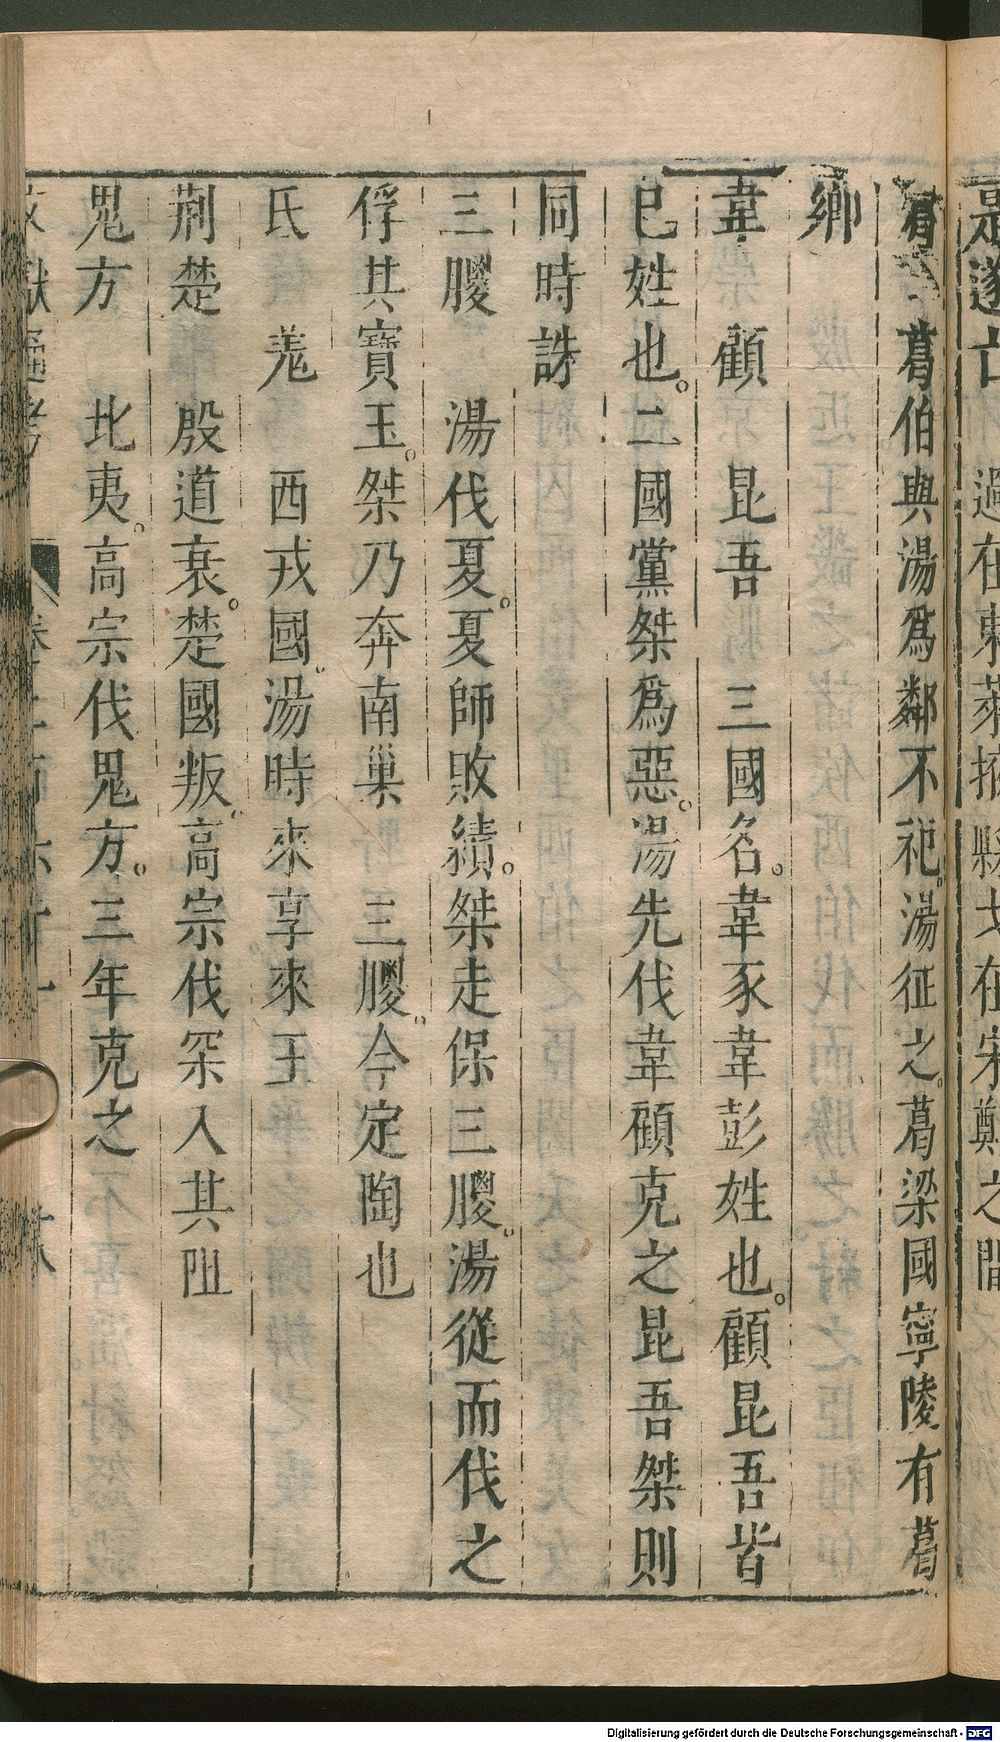 是遂亡　過在東萊掖縣戈在宋鄭之間
葛　葛伯與湯爲鄰不祀。湯征之。葛梁國寧陵有葛
鄉
韋　顧　昆吾　三國名。韋豕韋彭姓也。顧昆吾皆
已姓也。二國黨桀爲惡。湯先伐韋顧克之昆吾桀則
同時誅
三朡　湯伐夏。夏師敗績。桀走保三朡。湯從而伐之
俘其寶玉。桀乃奔南巢　三朡。今定陶也
氐　羌　西戎國。湯時來享來王
荆楚　殷道衰。楚國叛。高宗伐罙入其阻
鬼方　北夷。高宗伐鬼方。三年克之
Digitalisierung gefördert durch die Deutsche Forschungsgemeinschaft - DFG